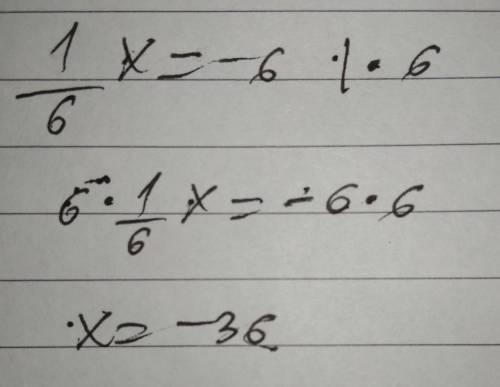 1/6 x = -6 /· 6
6 · 1/6 x = -6 · 6
x = -36